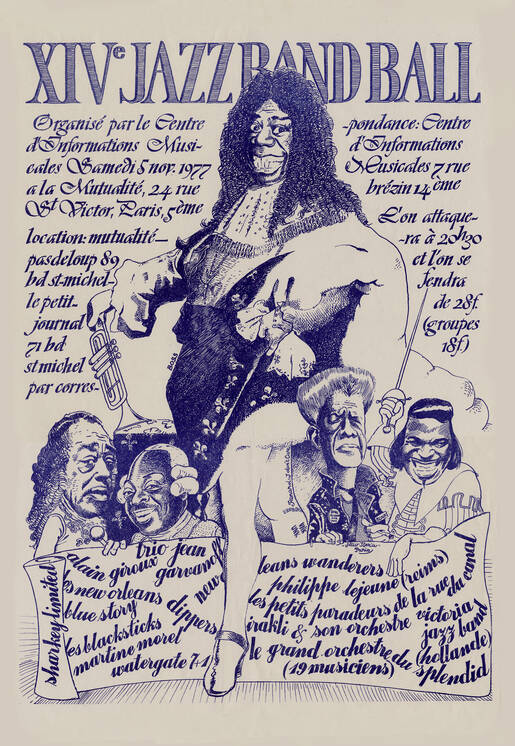 XIVe JAZZ BAND BALL
Organisé par le Centre
d'Informations Musi-
cales Samedi 5 nov. 1977
a la Mutualité, 24 rue
St Victor, Paris, 5ème
location: mutualité—
pasdeloup 89
bd st-michel-
le petit-
journal
71 bd
st michel
par corres-
-pondance: Centre
d'Informations
Musicales 7 rue
brézin 14ème
L'on attaque-
-ra à 20h30
et l'on se
fendra
de 28f.
(groupes
18f)
sharkey limited
alain giroux
trio jean
garvanoff
les new orleans
blue story
dippers
new
les blacksticks
martine morel
watergate 7+1
leans wanderers
philippe lejeune (reims)
les petits paradeurs de la rue du canal
irakli & son orchestre victoria
jazz band
le grand orchestre du (hollande)
(19 musiciens) splendid